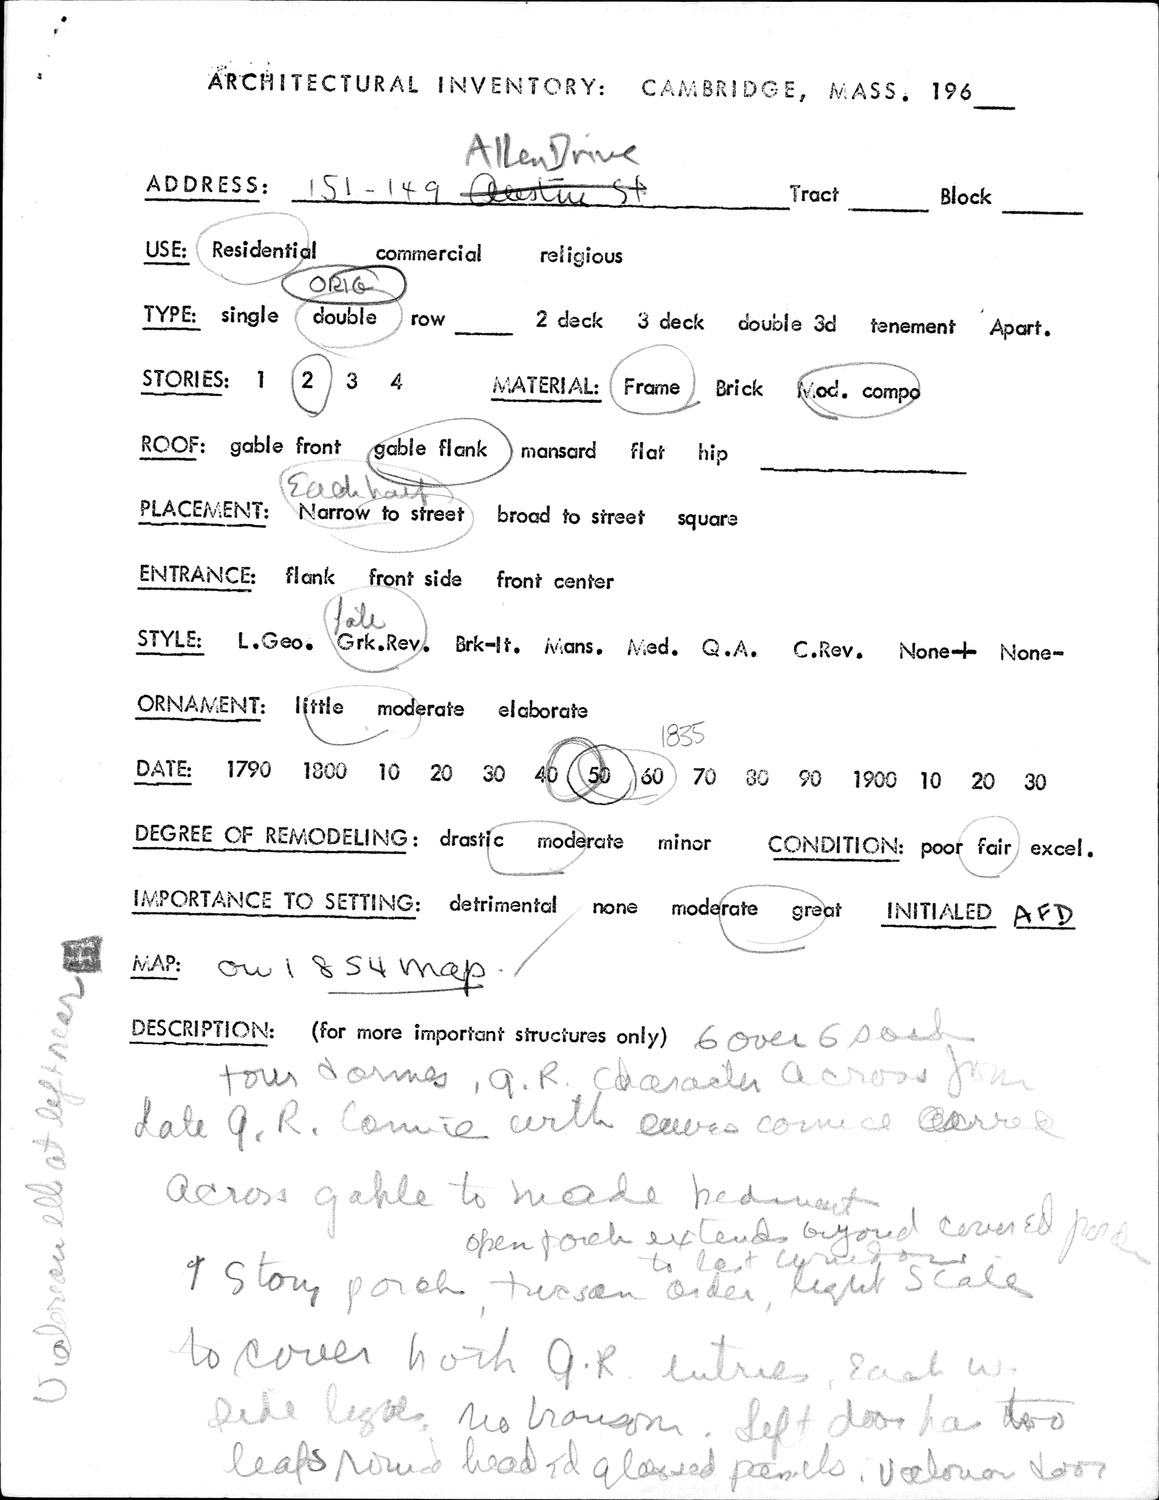 ARCHITECTURAL INVENTORY: CAMBRIDGE, MASS. 196__
Allen Drive
ADDRESS: 151-149 St Tract ____ Block ____
USE: Residential commercial religious
ORIG
TYPE: single double row ____ 2 deck 3 deck double 3d tenement Apart.
STORIES: 1 2 3 4 MATERIAL: Frame Brick Mod. compo
ROOF: gable front gable flank mansard flat hip ____
Each half
PLACEMENT: Narrow to street broad to street square
ENTRANCE: flank front side front center
late
STYLE: L.Geo. Grk.Rev. Brk-It. Mans. Med. Q.A. C.Rev. None+ None-
ORNAMENT: little moderate elaborate
1835
DATE: 1790 1800 10 20 30 40 50 60 70 80 90 1900 10 20 30
DEGREE OF REMODELING: drastic moderate minor CONDITION: poor fair excel.
IMPORTANCE TO SETTING: detrimental none moderate great INITIALED AFD
MAP: on 1854 map.
DESCRIPTION: (for more important structures only) 6 over 6 sash
four dormes, G.R. character across
late G.R. Cornice with eaves cornice
across gable to made pediment
open porch extends beyond covered porch
to last
1 Story porch, tuscan order, light Scale
to cover both G.R. entries, Each w.
side lights, no transom. Left door has two
leafs round headed glassed panels. door
ell at left rear